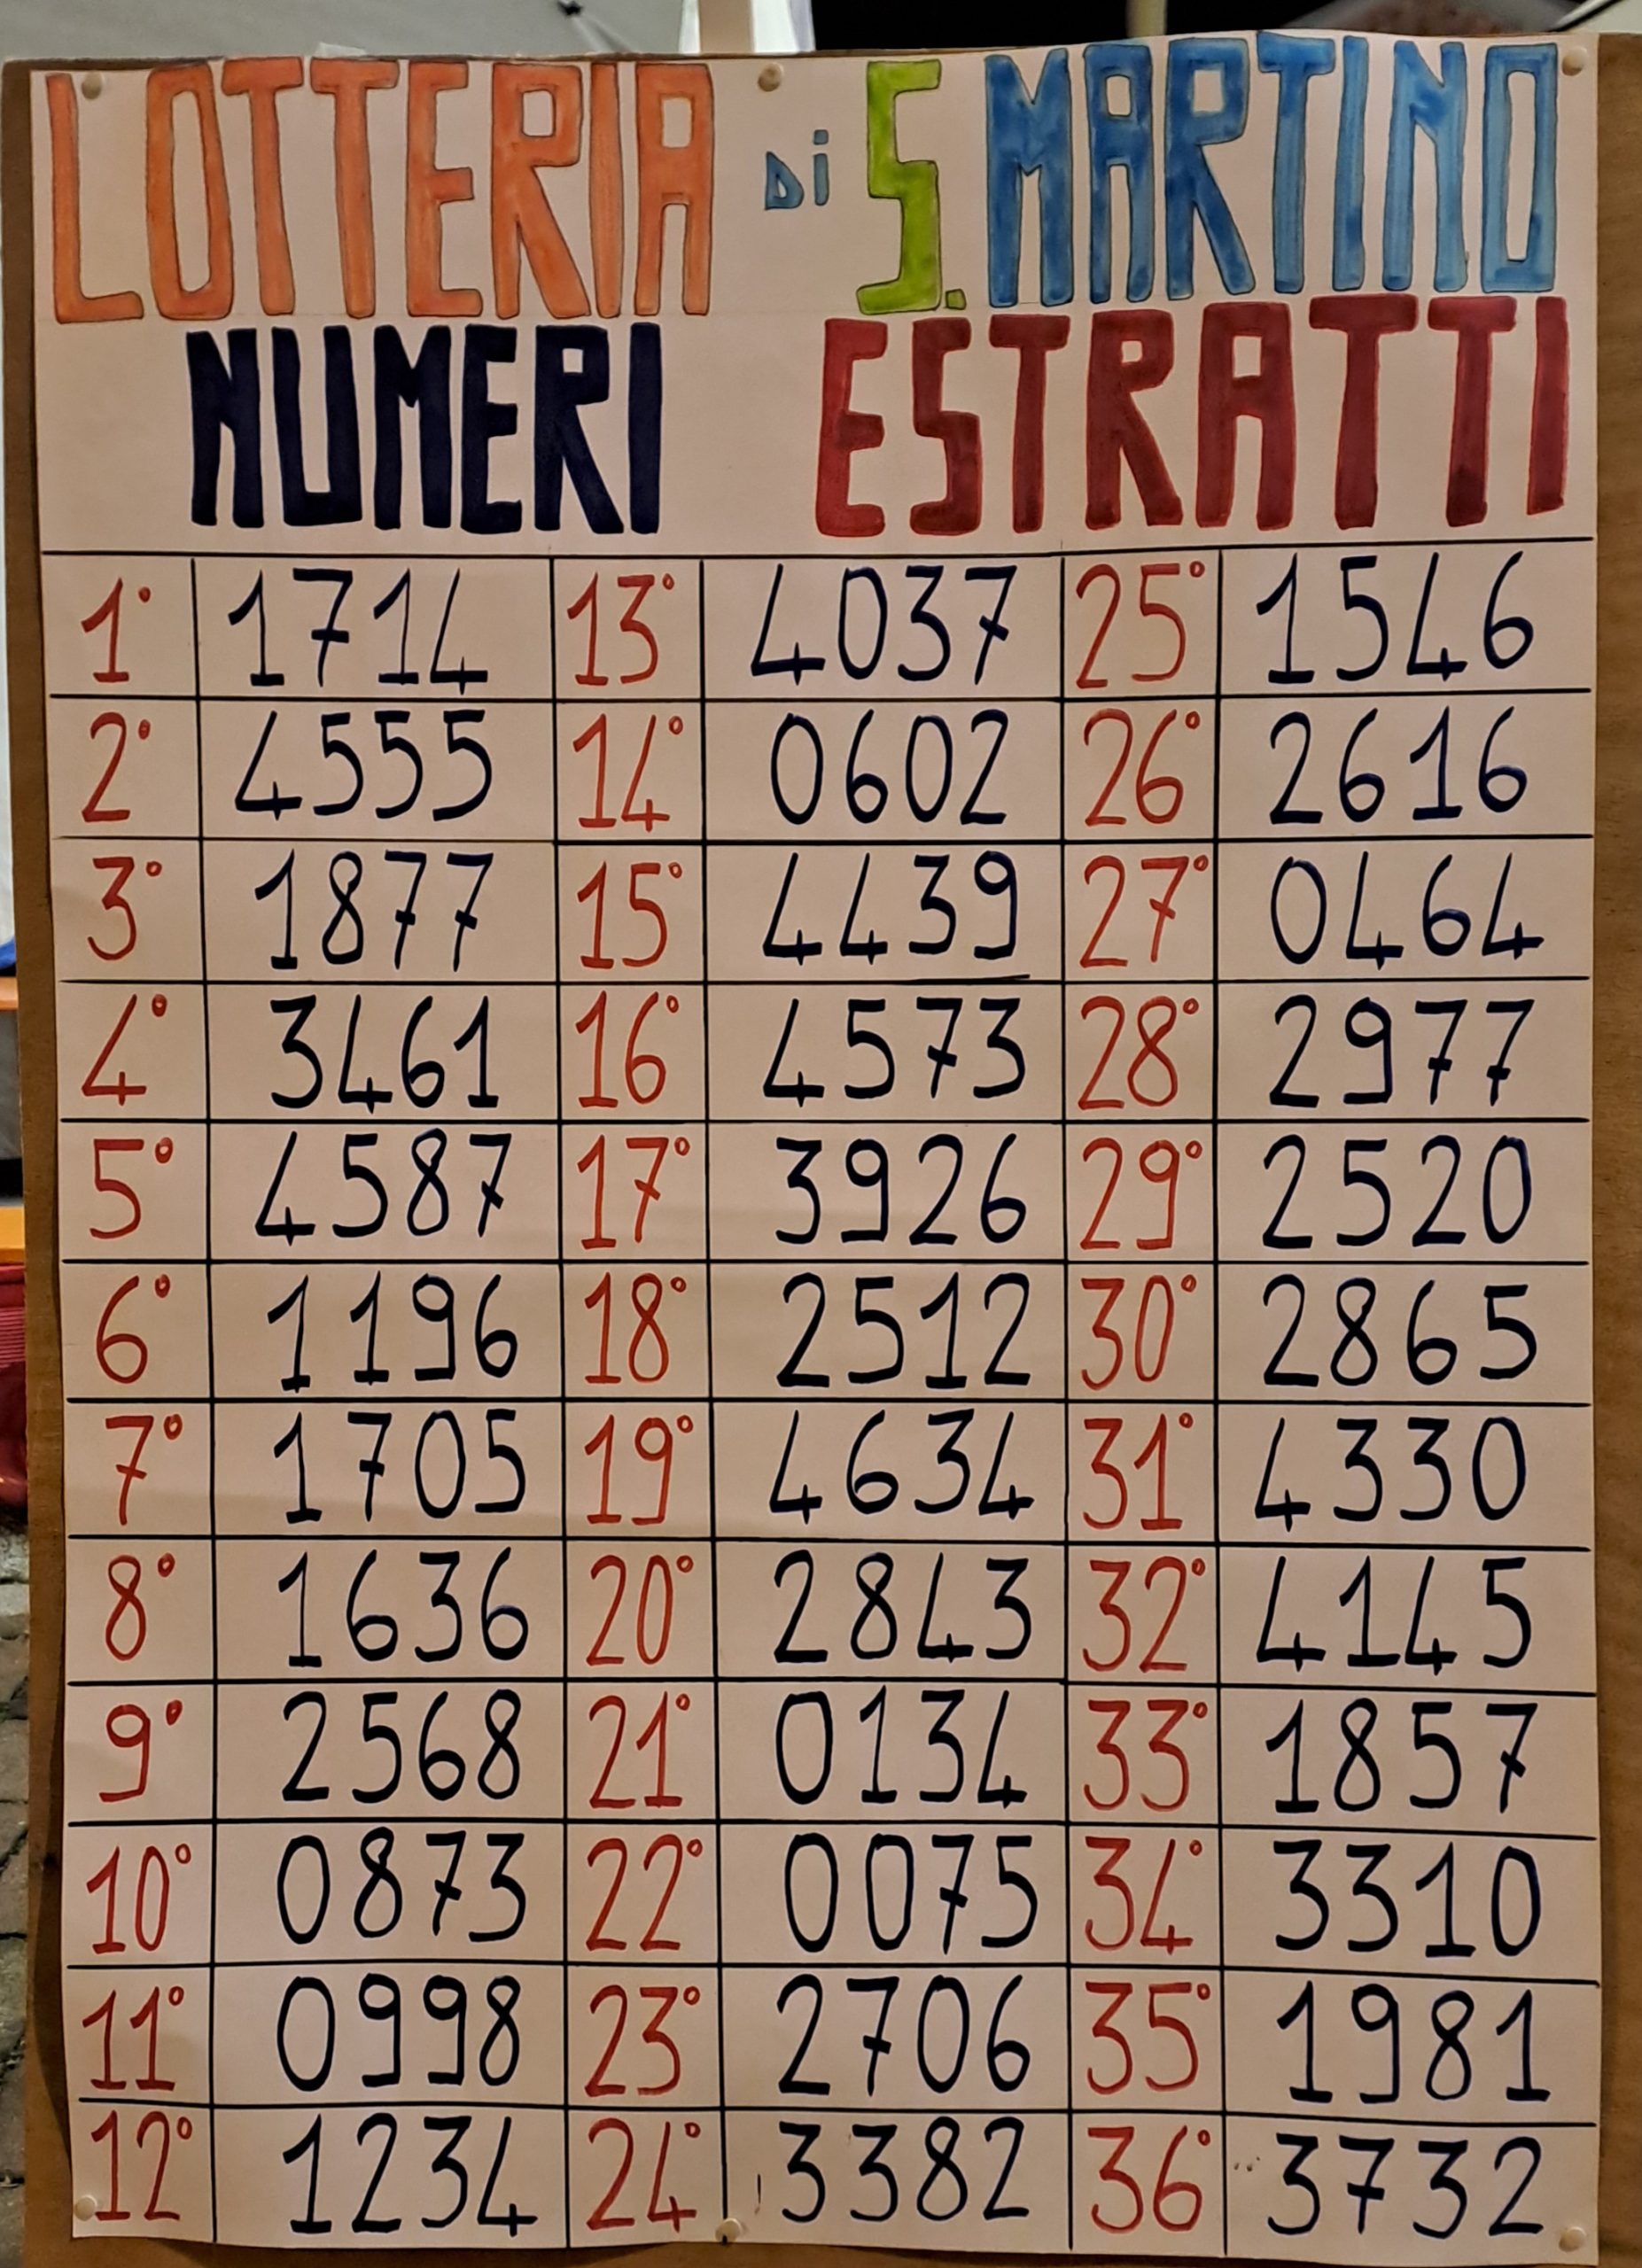 LOTTERIA DI S. MARTINO
NUMERI ESTRATTI
1° 1714 13° 4037 25° 1546
2° 4555 14° 0602 26° 2616
3° 1877 15° 4439 27° 0464
4° 3461 16° 4573 28° 2977
5° 4587 17° 3926 29° 2520
6° 1196 18° 2512 30° 2865
7° 1705 19° 4634 31° 4330
8° 1636 20° 2843 32° 4145
9° 2568 21° 0134 33° 1857
10° 0873 22° 0075 34° 3310
11° 0998 23° 2706 35° 1981
12° 1234 24° 3382 36° 3732